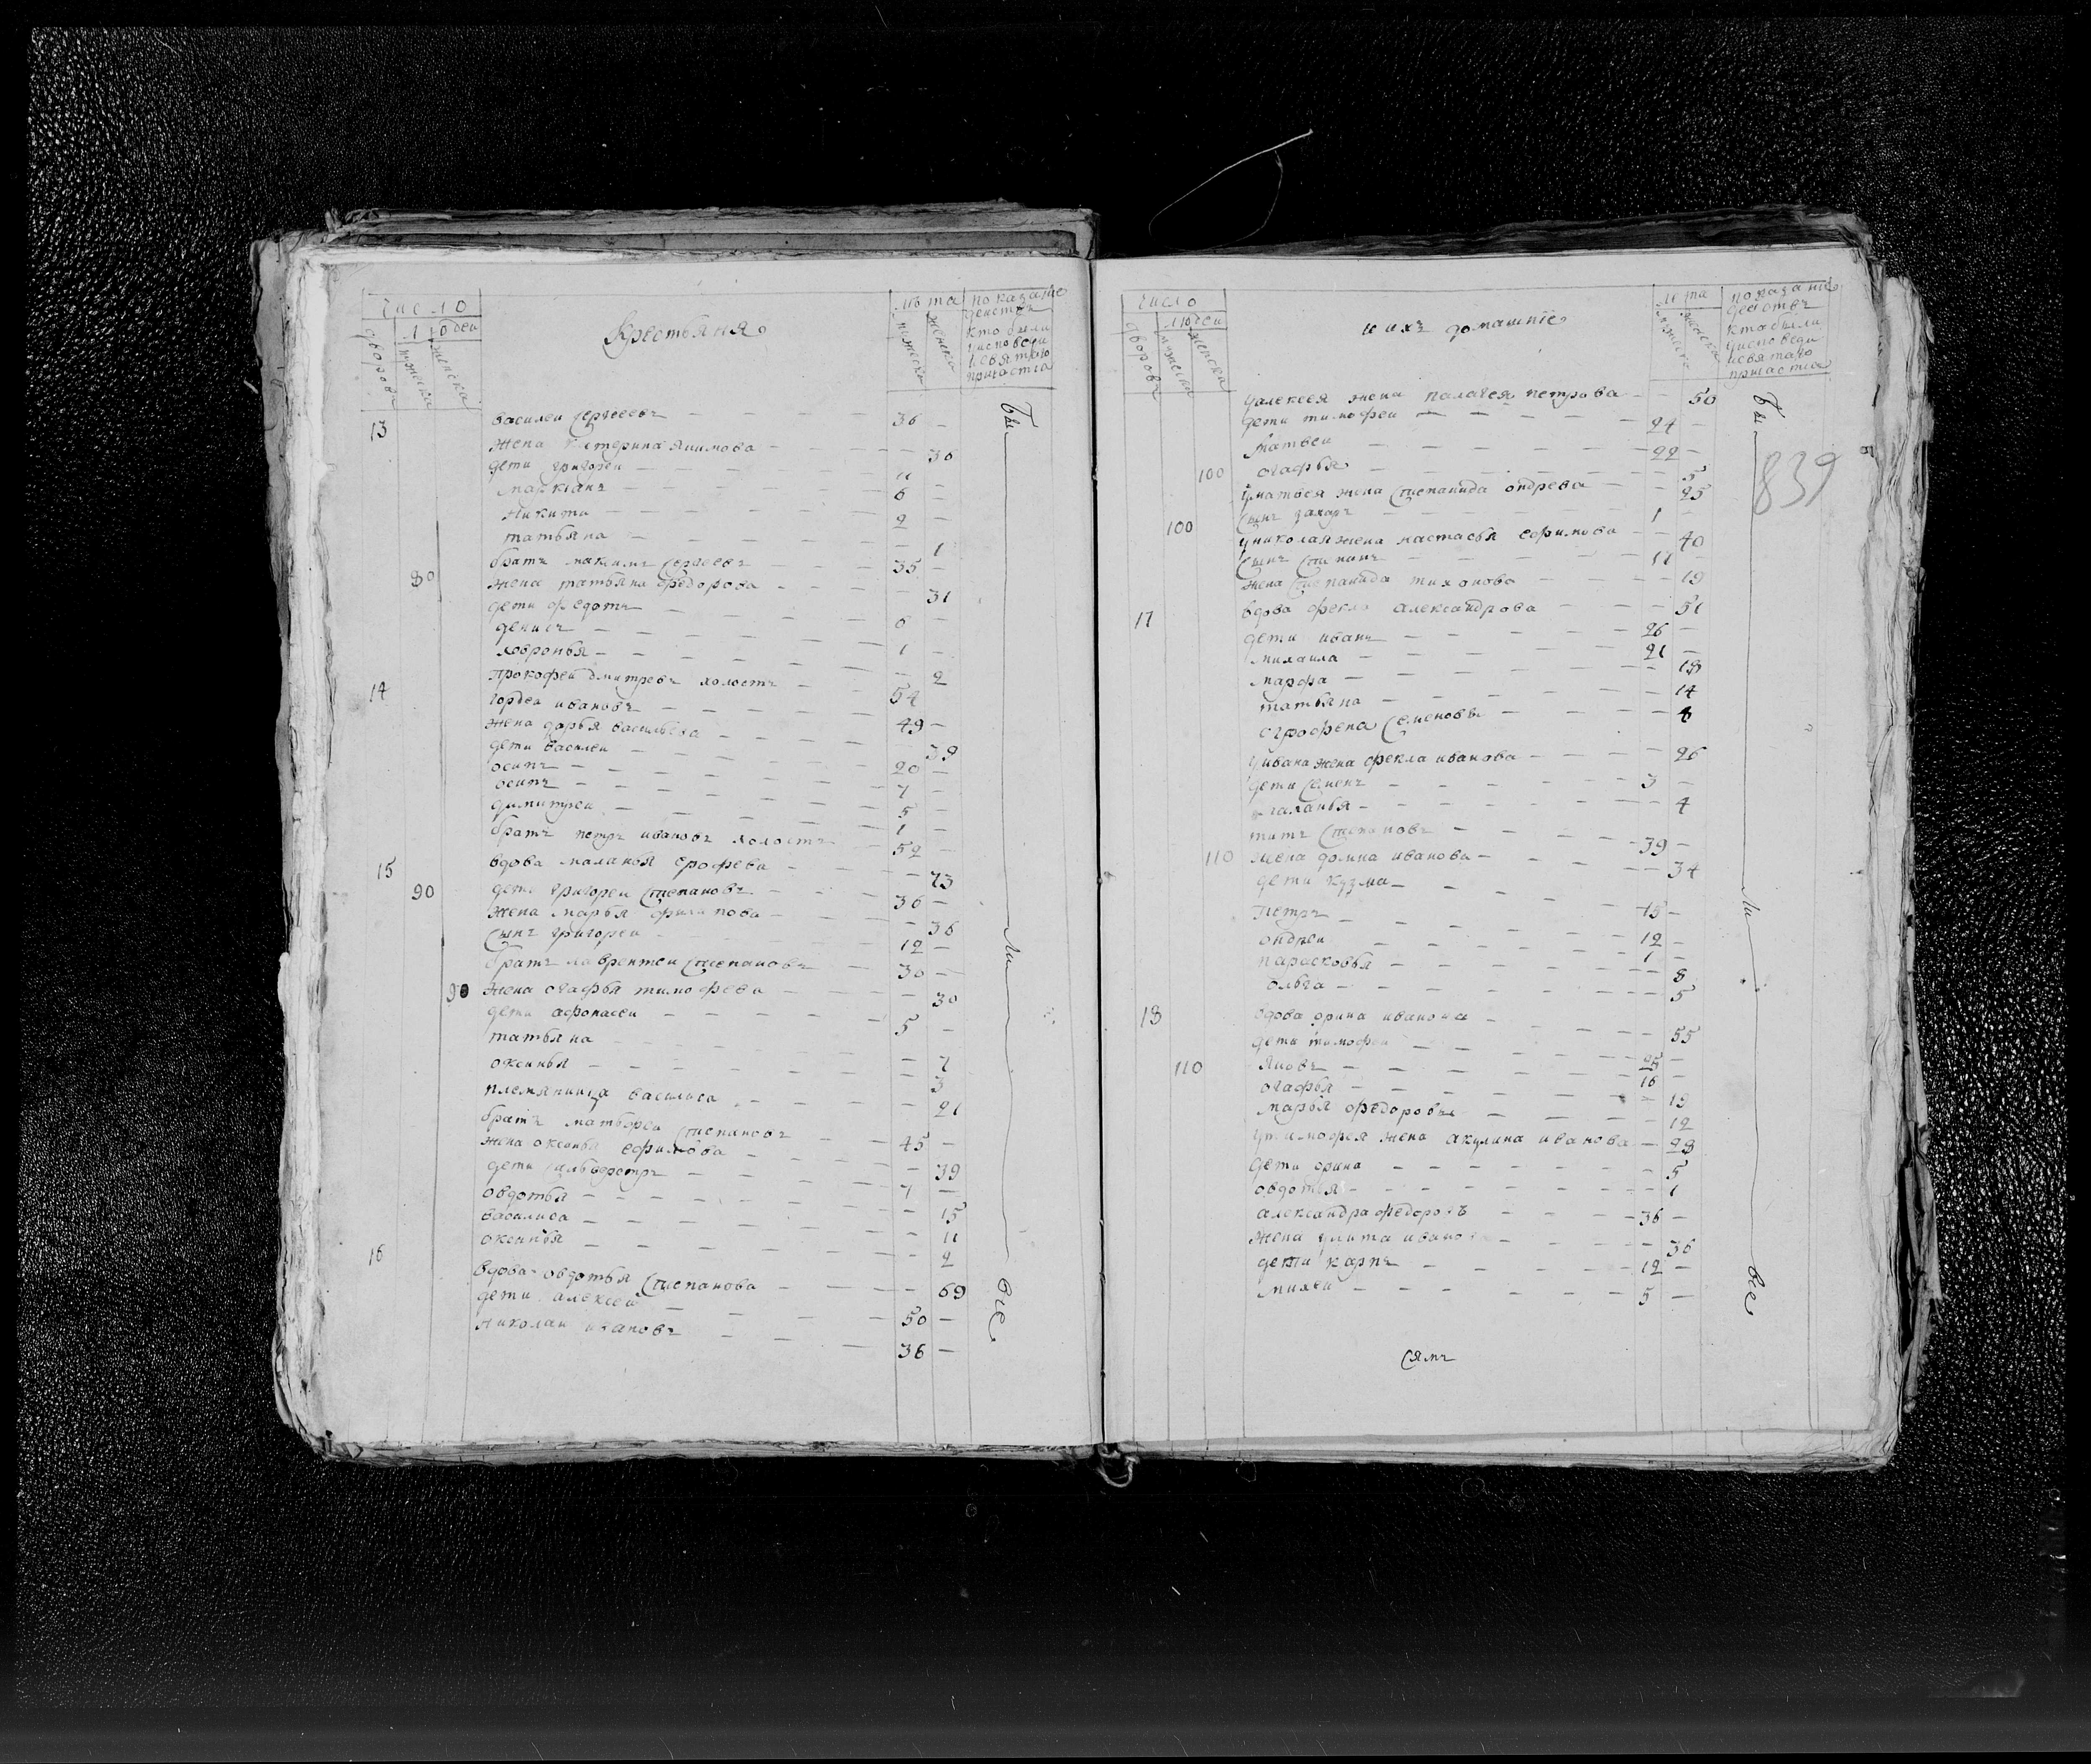 число
людеи
дворовъ
мужеска
женска
Крестьяня
лѣта
мужеска
женска
показание
деиствъ
кто были
у исповеди
и святаго
причастиа
13
василеи сергеевъ — — — 36 —
жена катерина якимова — — — 36
дети григореи — — — 11 —
маркианъ — — — 6 —
никита — — — 2 —
татьяна — — — 1
братъ максимъ сергеевъ — — 35 —
80
жена татьяна федорова — — — 31
дети федотъ — — — 6 —
денисъ — — — 1 —
ховронья — — — 2
14
прокофеи дмитревъ холостъ — — 54
гордеи ивановъ — — — 49 —
жена дарья васильева — — — 39
дети василеи — — — 20 —
осипъ — — — 7 —
осипъ — — — 5 —
димитреи — — — 1 —
братъ петръ ивановъ холостъ — 52 —
15
вдова маланья ерофева — — — 73
90
дети григореи степановъ — — 36 —
жена марья филипова — — — 36
сынъ григореи — — — 12 —
братъ лаврентеи степановъ — 30 —
90
жена огафья тимофева — — — 30
дети афонасеи — — — 5 —
татьяна — — — 7
оксинья — — — 3
племяница василиса — — — 21
братъ матьфеи степановъ — — 45 —
жена оксинья ефимова — — — 39
дети сильверстръ — — — 7 —
овдотья — — — 15
василиса — — — 11
оксинья — — — 2
16
вдова овдотья степанова — — — 69
дети алексеи — — — 50 —
николаи ивановъ — — — 36 —
Бы — ли — все
число
людеи
дворовъ
мужеска
женска
и ихъ домашние
лѣта
мужеска
женска
показание
деиствъ
кто были
у исповеди
и святаго
причастиа
839
у алексея жена палагея петрова — — 50
дети тимофеи — — — 24 —
матвеи — — — 22 —
100
огафья — — — 5
у матвея жена степанида ондрева — — 25
сынъ захаръ — — — 1 —
100
у николая жена настасья ефимова — — 40
сынъ степанъ — — — 17
жена степанида тихонова — — — 19
17
вдова фекла александрова — — — 51
дети иванъ — — — 26 —
михаила — — — 21 —
марфа — — — 18
татьяна — — — 14
огрофена семеновы — — — 8
у ивана жена фекла иванова — — — 26
дети семенъ — — — 3 —
маланья — — — 4
титъ степановъ — — — 39 —
110
жена домна иванова — — — 34
дети кузма — — — 15 —
петръ — — — 12 —
ондреи — — — 1 —
парасковья — — — 8
ольга — — — 5
18
вдова орина иванова — — — 55
дети тимофеи — — — 25 —
110
яковъ — — — 16 —
огафья — — — 19
марья федоровы — — — 12
у тимофея жена акулина иванова — 28
дети орина — — — 5
овдотья — — — 1
александра федоровъ — — — 36 —
жена улита ивано — — — 36
дети карпъ — — — 12 —
михеи — — — 5 —
Бы — ли — все